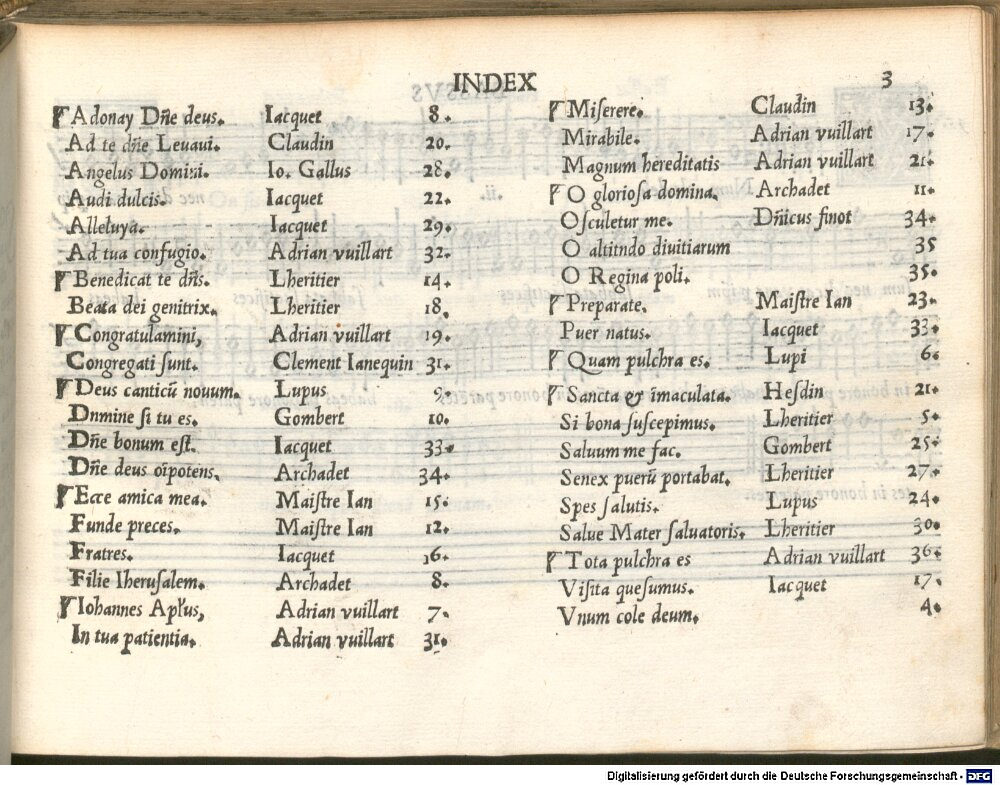 INDEX 3
¶ Adonay Dñe deus. Iacquet 8.
Ad te dñe Leuaui. Claudin 20.
Angelus Domini. Io. Gallus 28.
Audi dulcis. Iacquet 22.
Alleluya. Iacquet 29.
Ad tua confugio. Adrian vuillart 32.
¶ Benedicat te dñs. Lheritier 14.
Beata dei genitrix. Lheritier 18.
¶ Congratulamini, Adrian vuillart 19.
Congregati sunt. Clement Ianequin 31.
¶ Deus canticũ nouum. Lupus 9.
Dnmine si tu es. Gombert 10.
Dñe bonum est. Iacquet 33.
Dñe deus oĩpotens. Archadet 34.
¶ Ecce amica mea. Maistre Ian 15.
Funde preces. Maistre Ian 12.
Fratres. Iacquet 16.
Filie Iherusalem. Archadet 8.
¶ Iohannes Apl̃us, Adrian vuillart 7.
In tua patientia. Adrian vuillart 31.
¶ Miserere. Claudin 13.
Mirabile. Adrian vuillart 17.
Magnum hereditatis Adrian vuillart 21.
¶ O gloriosa domina. Archadet 11.
Osculetur me. Dñicus finot 34.
O altitndo diuitiarum 35
O Regina poli. 35.
¶ Preparate. Maistre Ian 23.
Puer natus. Iacquet 33.
¶ Quam pulchra es. Lupi 6.
¶ Sancta & ĩmaculata. Hesdin 21.
Si bona suscepimus. Lheritier 5.
Saluum me fac. Gombert 25.
Senex puerũ portabat. Lheritier 27.
Spes salutis. Lupus 24.
Salue Mater saluatoris. Lheritier 30.
¶ Tota pulchra es Adrian vuillart 36.
Visita quesumus. Iacquet 17.
Vnum cole deum. 4.
Digitalisierung gefördert durch die Deutsche Forschungsgemeinschaft - DFG